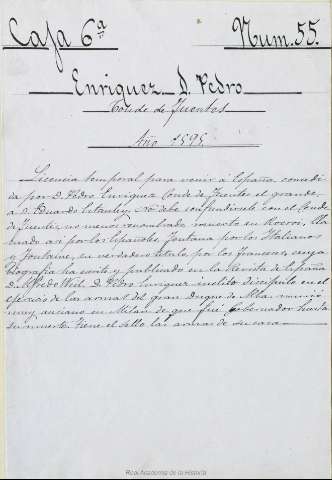 Caja 6ª Num. 55.
Enriquez D. Pedro
Conde de Fuentes
Año 1595
Licencia temporal para venir á España concedi-
da por D. Pedro Enriquez Conde de Fuentes el grande,
a D. Eduardo Stanley. No debe confundirsele con el Conde
de Fuentes, no menos renombrado muerto en Rocroi, lla
mado asi por los Españoles, Fontana por los Italianos
y Fontaine, su verdadero titulo por los franceses, cuya
biografia ha escrito y publicado en la Revista de España
D. Alfredo Weil. D. Pedro Enriquez inclito discipulo en el
ejercicio de las armas del gran Duque de Alba murió
muy anciano en Milan de que fué Gobernador hasta
su muerte. Tiene el sello las armas de su casa
Real Academia de la Historia